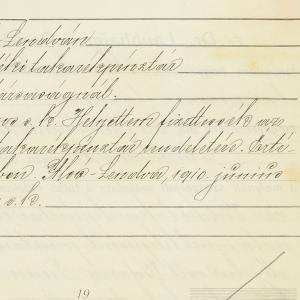 -Lendván
éki takarékpénztár
társaságnál.
s. k. Helyettem fizettessék az
takarékpénztár rendeletére. Érté-
ben. Alsó-Lendva, 1910. június
s. k.
19